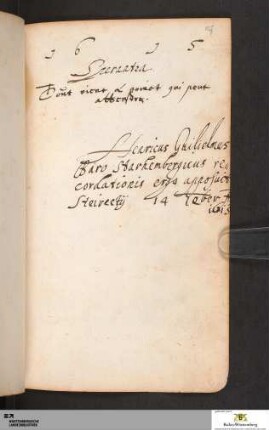 1 6 1 5
Speranza
Tout vient à point qui peut
attendre.
Henricus Guilielmus
Baro Starhembergicus re
cordationis ergo apposuit
14
1615
WÜRTTEMBERGISCHE
LANDESBIBLIOTHEK
Baden-Württemberg